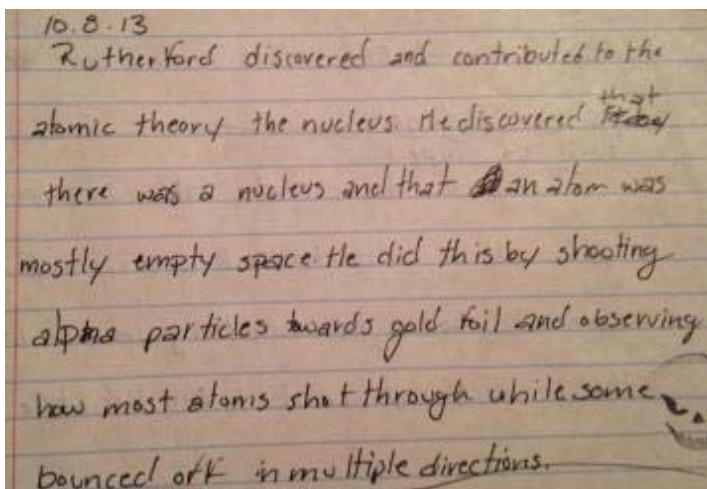 10.8.13
Rutherford discovered and contributed to the
atomic theory the nucleus. He discovered that
there was a nucleus and that an atom was
mostly empty space. He did this by shooting
alpha particles towards gold foil and observing
how most atoms shot through while some
bounced off in multiple directions.